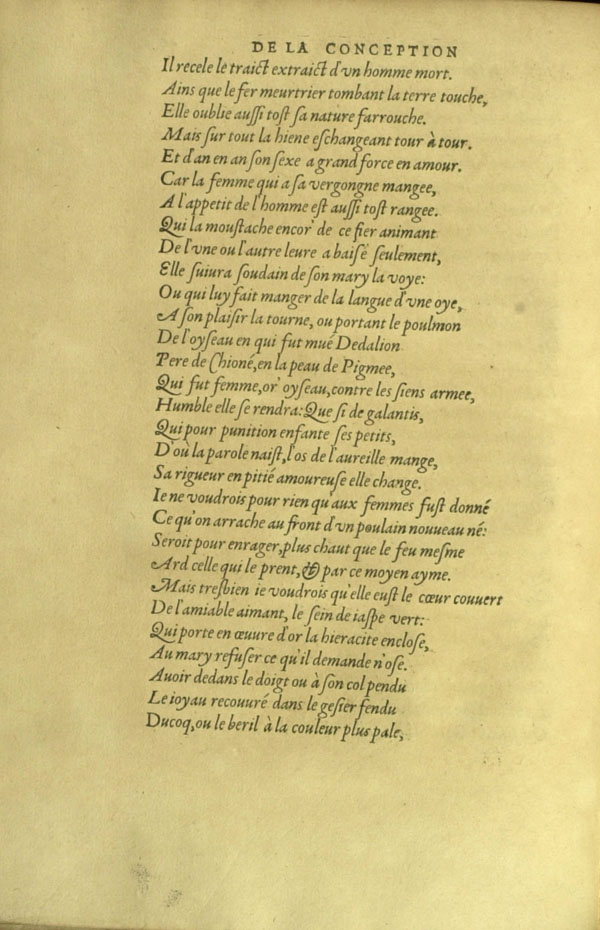 DE LA CONCEPTION
Il recele le traict extraict d'vn homme mort.
Ains que le fer meurtrier tombant la terre touche,
Elle oublie auſſi toſt ſa nature farrouche.
Mais ſur tout la hiene eſchangeant tour à tour.
Et d'an en an ſon ſexe a grand force en amour.
Car la femme qui a ſa vergongne mangee,
A l'appetit de l'homme eſt auſſi toſt rangee.
Qui la mouſtache encor' de ce fier animant
De l'vne ou l'autre leure a baiſé ſeulement,
Elle ſuiura ſoudain de ſon mary la voye:
Ou qui luy fait manger de la langue d'vne oye,
A ſon plaiſir la tourne, ou portant le poulmon
De l'oyſeau en qui fut mué Dedalion
Pere de Chioné, en la peau de Pigmee,
Qui fut femme, or' oyſeau, contre les ſiens armee,
Humble elle ſe rendra: Que ſi de galantis,
Qui pour punition enfante ſes petits,
D'ou la parole naiſt, l'os de l'aureille mange,
Sa rigueur en pitié amoureuſe elle change.
Ie ne voudrois pour rien qu'aux femmes fuſt donné
Ce qu'on arrache au front d'vn poulain nouueau né:
Seroit pour enrager, plus chaut que le feu meſme
Ard celle qui le prent, & par ce moyen ayme.
Mais treſbien ie voudrois qu'elle euſt le cœur couuert
De l'amiable aimant, le ſein de iaſpe vert:
Qui porte en œuure d'or la hieracite encloſe,
Au mary refuſer ce qu'il demande n'oſe.
Auoir dedans le doigt ou à ſon col pendu
Le ioyau recouuré dans le geſier fendu
Du coq, ou le beril à la couleur plus pale,